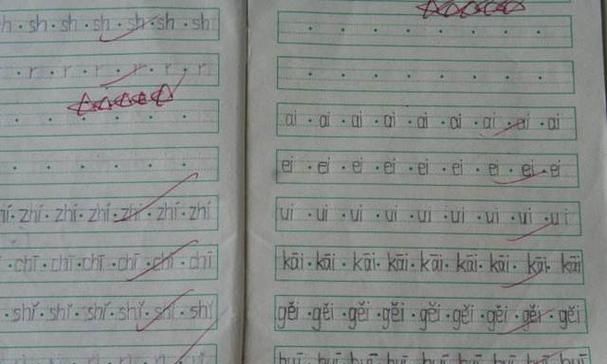 sh · sh · sh · sh · sh · sh
· r · r · r · r · r · r
zhí · zhí · zhí · zhí · zhí · zhí
· chī · chī · chī · chī · chī · chī
· shí · shí · shí · shí · shí · shí
ai · ai · ai · ai · ai · ai · ai · ai · ai
ei · ei · ei · ei · ei · ei · ei · ei · ei
ui · ui · ui · ui · ui · ui · ui · ui · ui
kāi · kāi · kāi · kāi · kāi · kāi · kāi · kāi · kāi
gěi · gěi · gěi · gěi · gěi · gěi · gěi · gěi · gěi